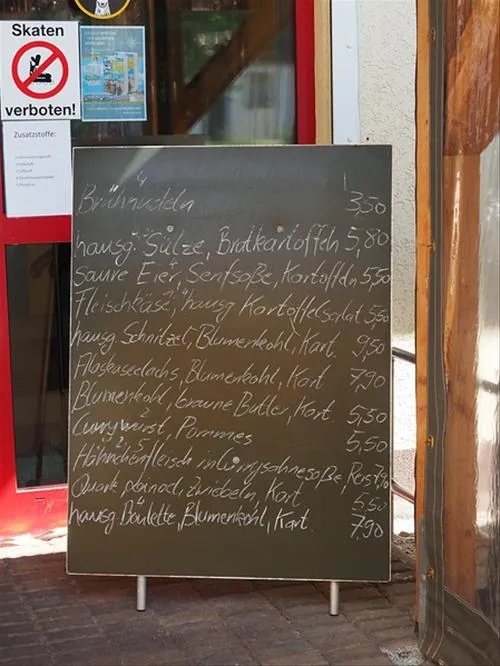 Skaten
verboten!
Zusatzstoffe:
Brühnudeln 3,50
hausg. Sülze, Bratkartoffeln 5,80
saure Eier, Senfsoße, Kartoffeln 5,50
Fleischkäse, hausg Kartoffelsalat 5,50
hausg. Schnitzel, Blumenkohl, Kart. 9,50
Alaskaseelachs, Blumenkohl, Kart 7,90
Blumenkohl, braune Butter, Kart 5,50
Currywurst, Pommes 5,50
Hähnchenfleisch in Currysahnesoße, Reis
Quark, Zwiebeln, Kart 5,50
hausg Boulette, Blumenkohl, Kart. 7,90